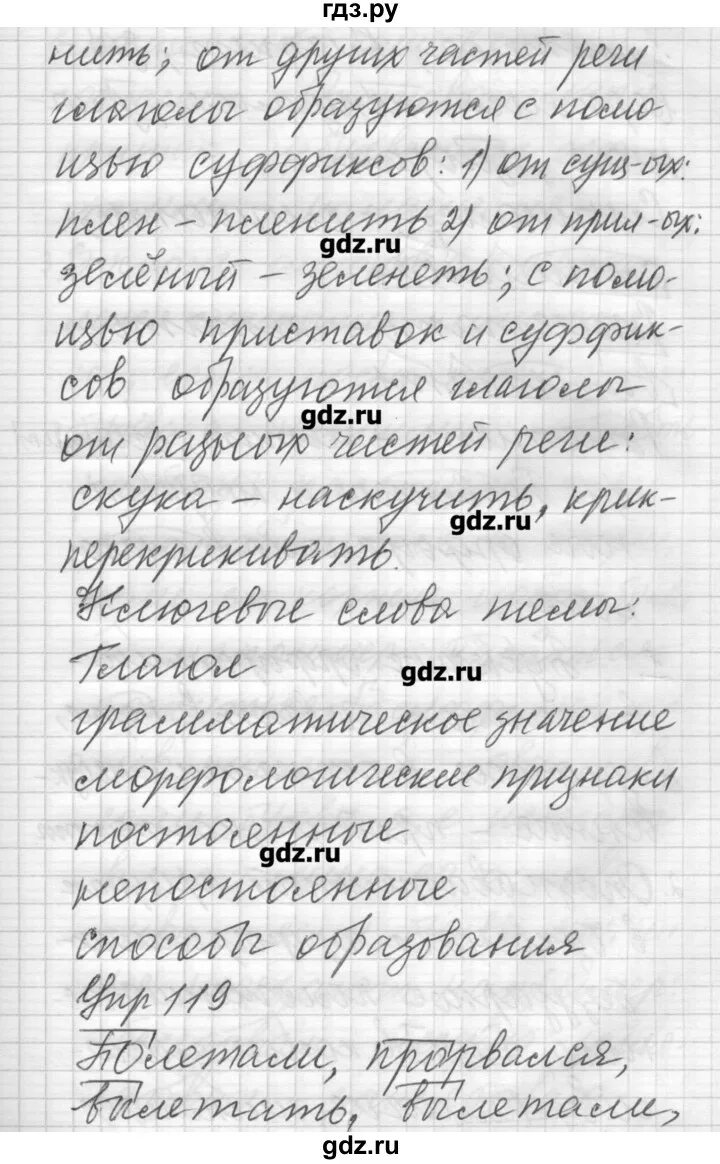 гдз.ру
нить; от других частей речи
глаголы образуются с помо
щью суффиксов: 1) от сущ-ых:
плен – пленить 2) от прил-ых:
gdz.ru
зелёный – зеленеть; с помо-
щью приставок и суффик-
сов образуются глаголы
gdz.ru
от разных частей речи:
скука – наскучить, крик-
gdz.ru
перекрикивать.
Ключевые слова темы:
Глагол
gdz.ru
грамматическое значение
морфологические признаки
постоянные
gdz.ru
непостоянные
способы образования
Упр 119
Полетали, прорвался,
вылетать, вылетали,
gdz.ru